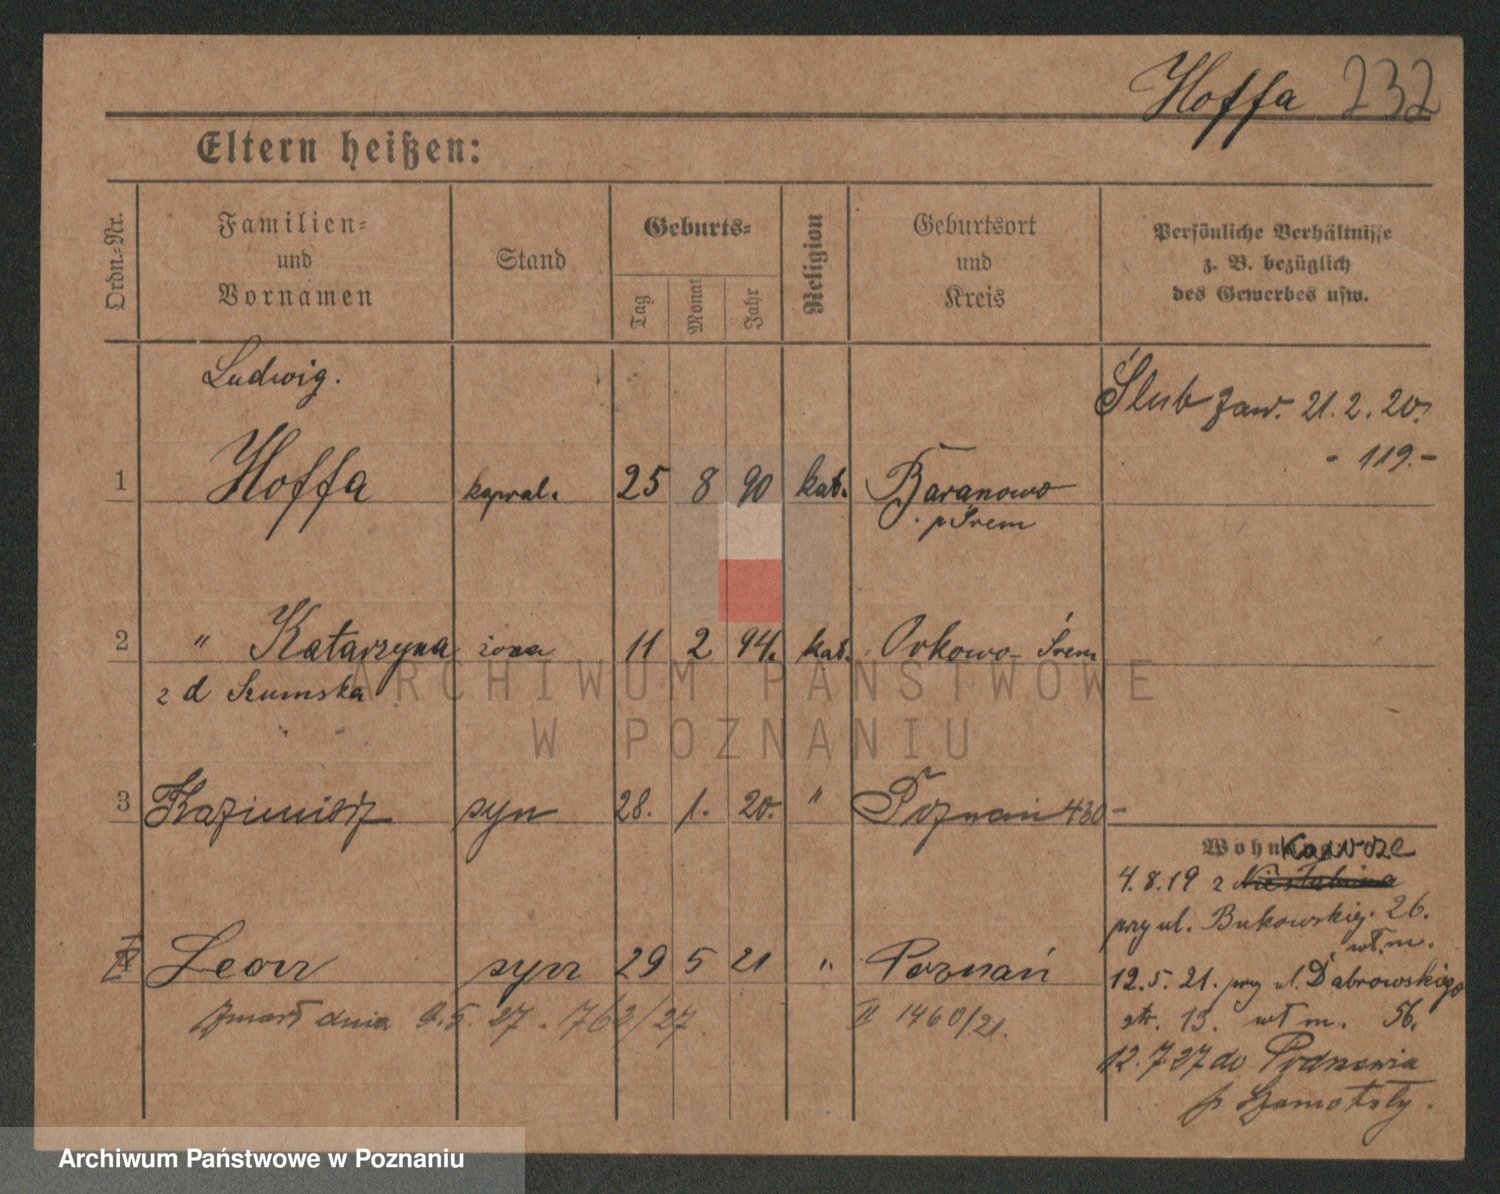 Hoffa 232
Eltern heißen:
Ordn.-Nr.
Familien-
und
Vornamen
Stand
Geburts-
Tag
Monat
Jahr
Religion
Geburtsort
und
Kreis
Persönliche Verhältnisse
z. B. bezüglich
des Gewerbes usw.
Ludwig.
Ślub zaw. 21.2.20.
- 119.-
1 Hoffa kapral. 25 8 90 kat. Baranowo
p Śrem
2 " Katarzyna żona 11 2 94. kat. Orkowo - Śrem
z d Szumska
ARCHIWUM PAŃSTWOWE
W POZNANIU
3 Kazimierz syn 28. 1. 20. " Poznań 430 -
4.8.19 z
przy ul. Bukowskiej. 26.
wł. m.
4 Leon syn 29 5 21 " Poznań
12.5.21. przy ul. Dąbrowskiego
Zmarł dnia 9.5.27. 762/27
II 1460/21.
str. 13. wł m. 56.
12.7.27 do
p Szamotuły.
Archiwum Państwowe w Poznaniu